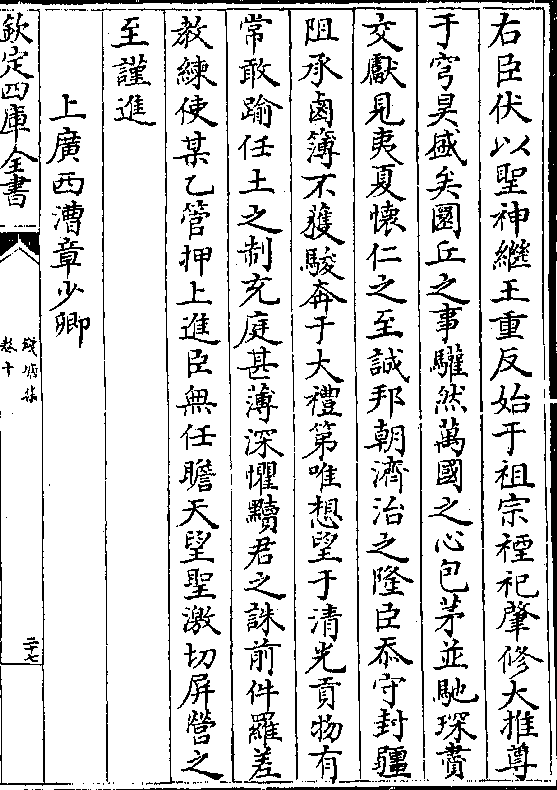 右臣伏以聖神繼王重反始于祖宗禋祀肇修大推尊
于穹昊盛矣圜丘之事驩然萬國之心包茅並馳琛賮
交獻見夷夏懷仁之至誠邦朝濟治之隆臣忝守封疆
阻承鹵簿不獲駿奔于大禮第唯想望于清光貢物有
常敢踰任土之制充庭甚薄深懼黷君之誅前件羅差
教練使某乙管押上進臣無任瞻天望聖激切屏營之
至謹進
上廣西漕章少卿
欽定四庫全書
卷十
二十七